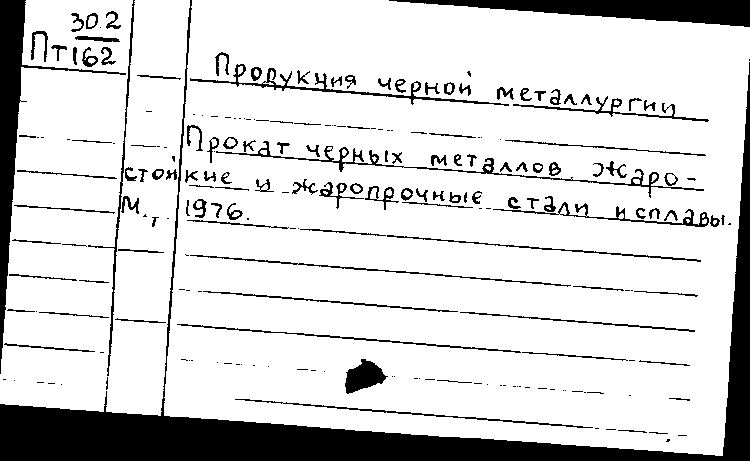 30.2
Пт162
Продукция черной металлургии
Прокат черных металлов. Жаро-
стойкие и жаропрочные стали и сплавы.
М.,т. 1976.